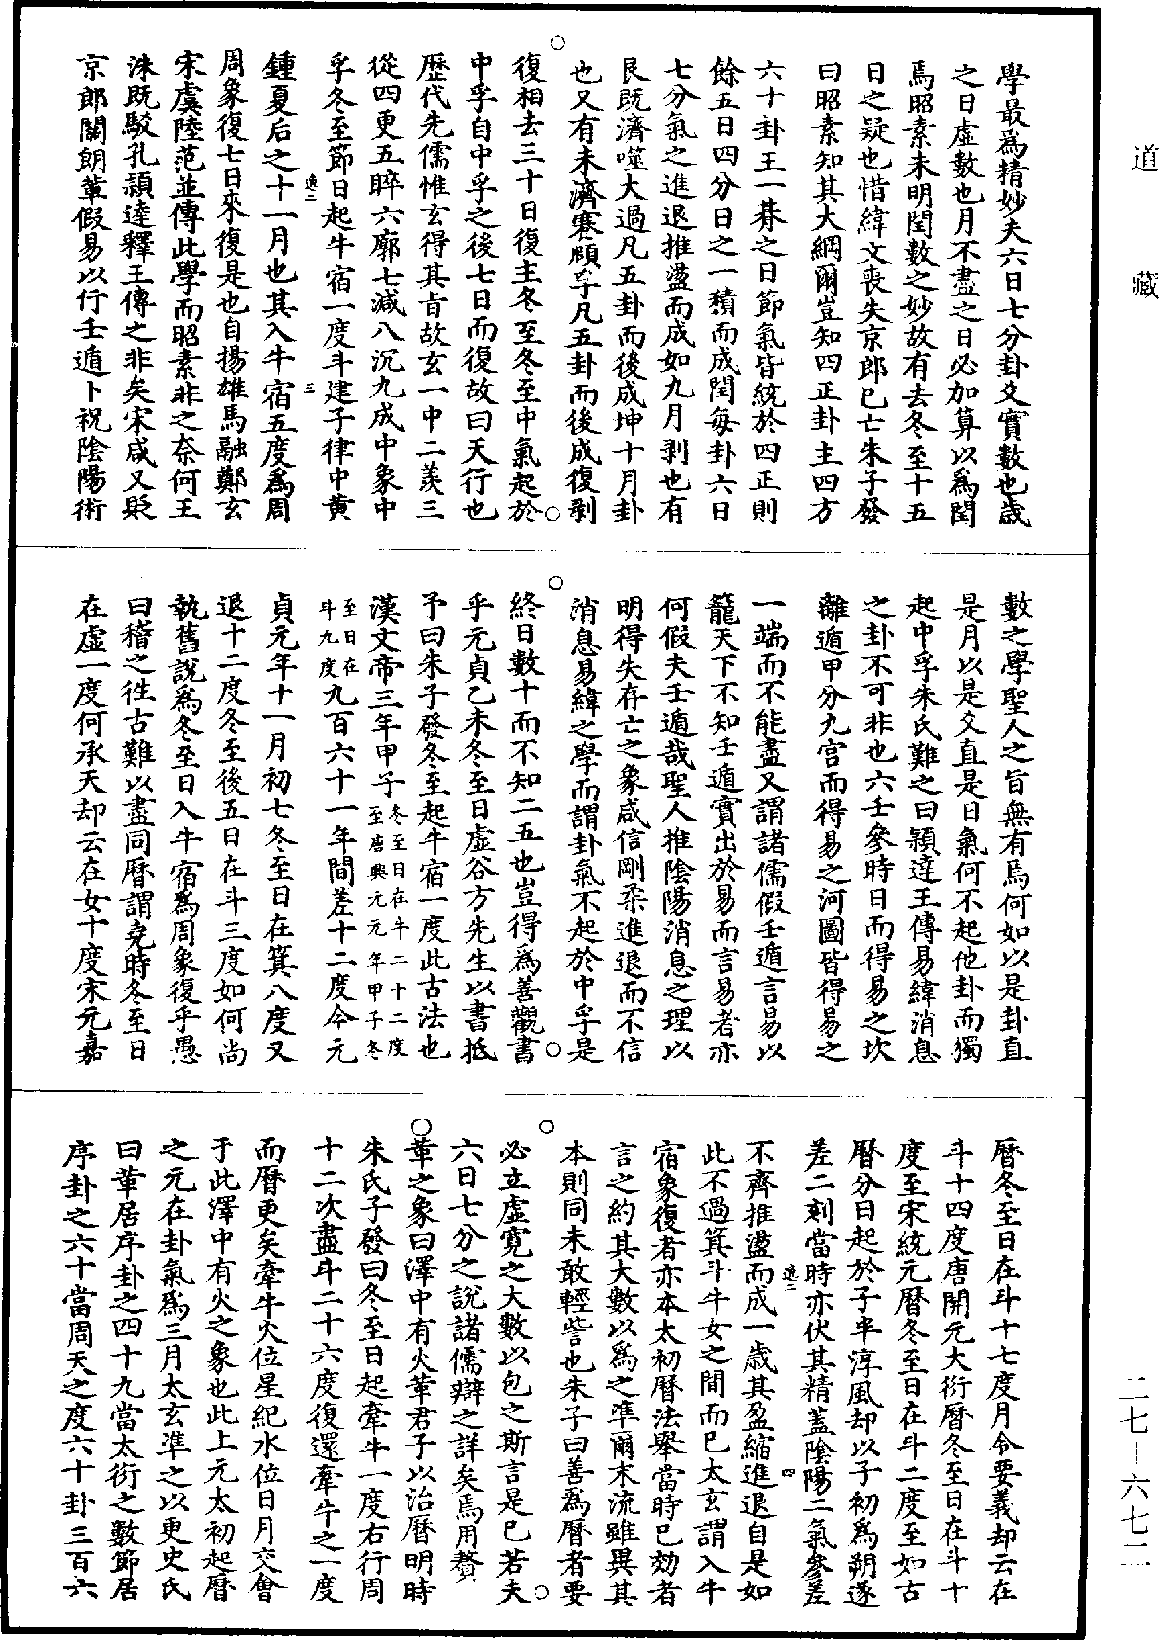 道藏
學最為精妙夫六日七分卦爻實數也歲
之日虛數也月不盡之日必加算以為閏
焉昭素未明閏數之妙故有去冬至十五
日之疑也惜緯文喪失京郎已亡朱子發
曰昭素知其大綱爾豈知四正卦主四方
六十卦王一朞之日節氣皆統於四正則
餘五日四分日之一積而成閏每卦六日
七分氣之進退推盪而成如九月剥也有
艮既濟噬大過凡五卦而後成坤十月卦
也又有未濟蹇頤孚凡五卦而後成復剥
復相去三十日復主冬至冬至中氣起於
中孚自中孚之後七日而復故曰天行也
歷代先儒惟玄得其旨故玄一中二羡三
從四更五睟六廓七減八沉九成中象中
孚冬至節日起牛宿一度斗建子律中黄
鍾夏后之十一月也其入牛宿五度為周
周象復七日來復是也自揚雄馬融鄭玄
宋虞陸范並傳此學而昭素非之奈何王
洙既駁孔穎達釋王傳之非矣宋咸又貶
京郎關朗輩假易以行壬遁卜祝陰陽術
數之學聖人之旨無有焉何如以是卦直
是月以是爻直是日氣何不起他卦而獨
起中孚朱氏難之曰穎達王傳易緯消息
之卦不可非也六壬參時日而得易之坎
離遁甲分九宮而得易之河圖皆得易之
一端而不能盡又謂諸儒假壬遁言易以
籠天下不知壬遁實出於易而言易者亦
何假夫壬遁哉聖人推陰陽消息之理以
明得失存亡之象咸信剛柔進退而不信
消息易緯之學而謂卦氣不起於中孚是
終日數十而不知二五也豈得為善觀書
乎元貞乙未冬至日虛谷方先生以書抵
予曰朱子發冬至起牛宿一度此古法也
漢文帝三年甲子冬至日在牛二十二度至唐興元元年甲子冬
至日在斗九度九百六十一年間差十二度今元
貞元年十一月初七冬至日在箕八度又
退十二度冬至後五日在斗三度如何尚
執舊說為冬至日入牛宿為周象復乎愚
曰稽之徃古難以盡同曆謂堯時冬至日
在虛一度何承天却云在女十度宋元嘉
曆冬至日在斗十七度月令要義却云在
斗十四度唐開元大衍曆冬至日在斗十
度至宋統元曆冬至日在斗二度至如古
曆分日起於子半淳風却以子初為朔遂
差二刻當時亦伏其精蓋陰陽二氣參差
不齊推盪而成一歲其盈縮進退自是如
此不過箕斗牛女之間而已太玄謂入牛
宿象復者亦本太初曆法舉當時已効者
言之約其大數以為之準爾末流雖異其
本則同未敢輕訾也朱子曰善為曆者要
必立虛寬之大數以包之斯言是已若夫
六日七分之說諸儒辯之詳矣焉用贅
革之象曰澤中有火革君子以治曆明時
朱氏子發曰冬至日起牽牛一度右行周
十二次盡斗二十六度復還牽牛之一度
而曆更矣牽牛火位星紀水位日月交會
于此澤中有火之象也此上元太初起曆
之元在卦氣為三月太玄準之以更史氏
曰革居序卦之四十九當太衍之數節居
序卦之六十當周天之度六十卦三百六
二七—六七二